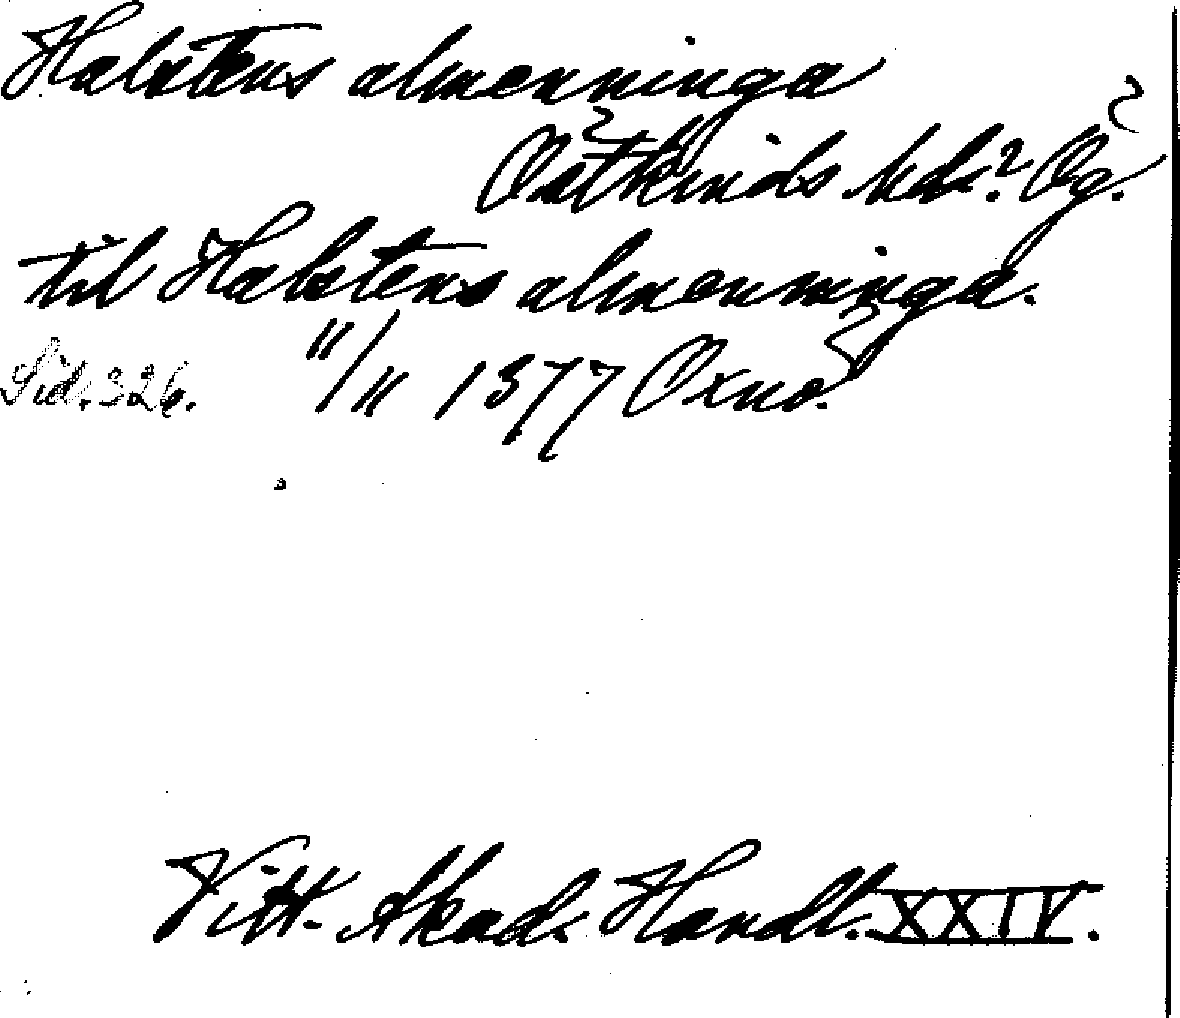 Halstens almenninga
Östkinds hd.? Ög.?
til Halstens almenninga.
Sid. 326. 11/11 1377 Oxno.
Vitt. Akad. Handl. XXIV.